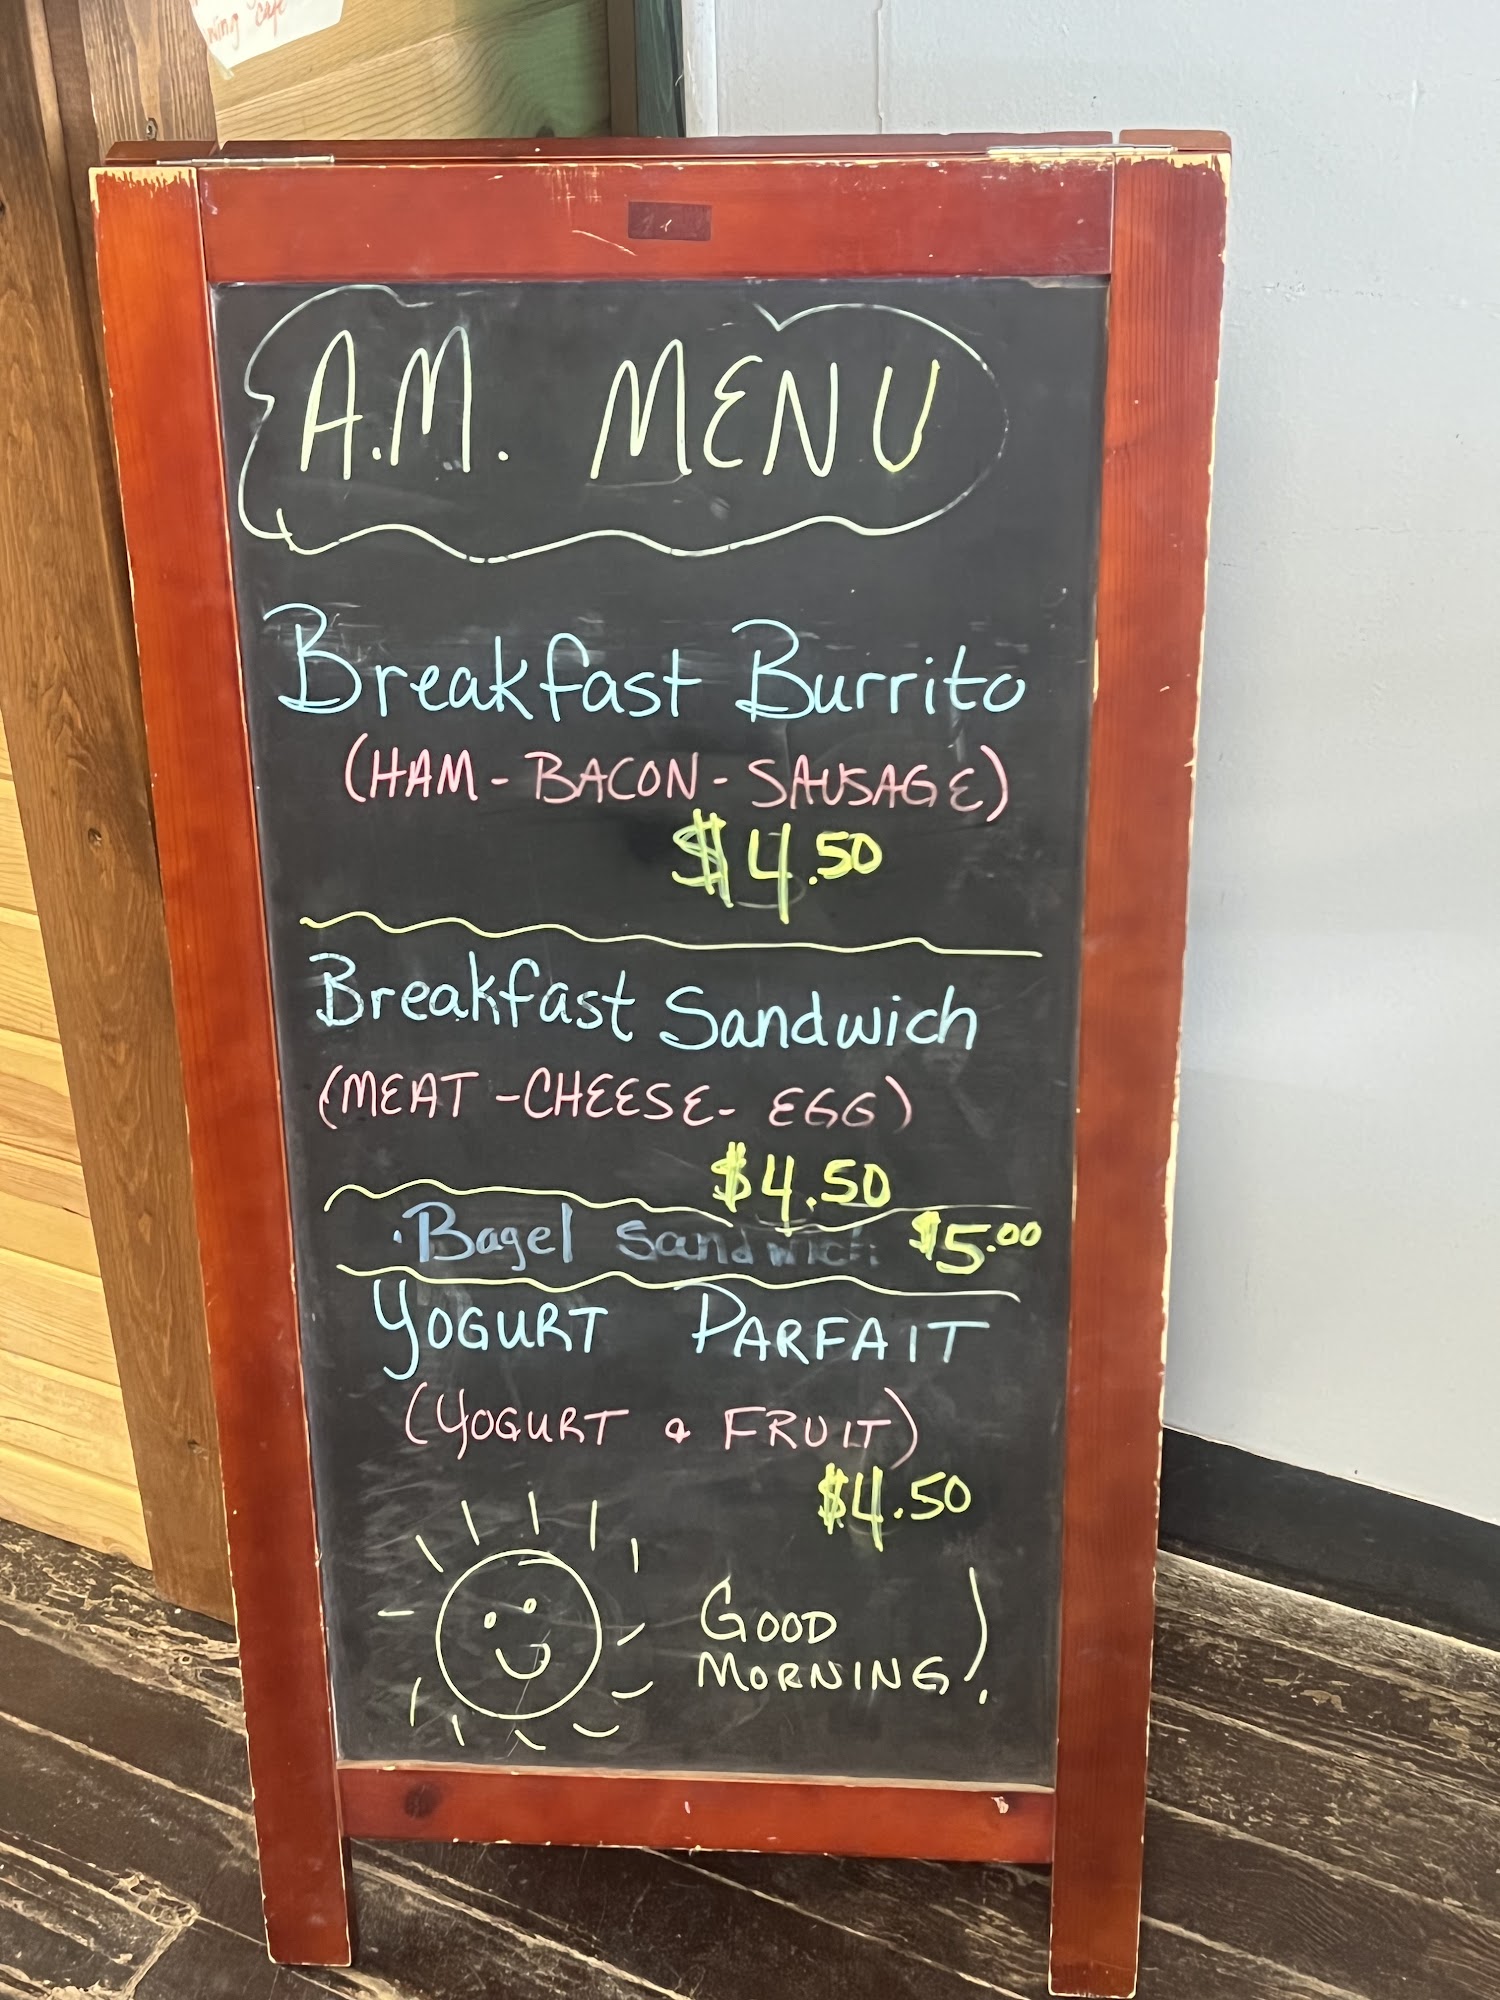 wing cafe
A.M. MENU
Breakfast Burrito
(HAM - BACON - SAUSAGE)
$4.50
Breakfast Sandwich
(MEAT - CHEESE - EGG)
$4.50
· Bagel Sandwich $5.00
YOGURT PARFAIT
(YOGURT & FRUIT)
$4.50
GOOD
MORNING!